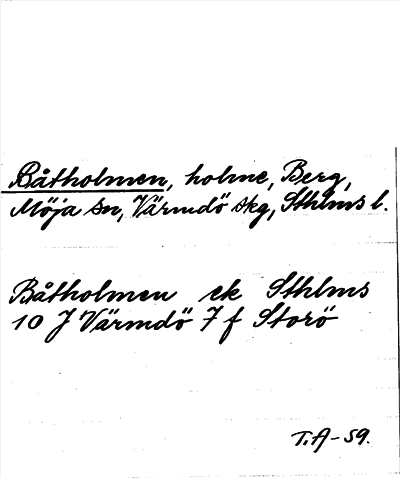 Båtholmen, holme, Berg,
Möja sn, Värmdö skg, Sthlms l.
Båtholmen ek Sthlms
10 J Värmdö 7 f Storö
T.A-59.